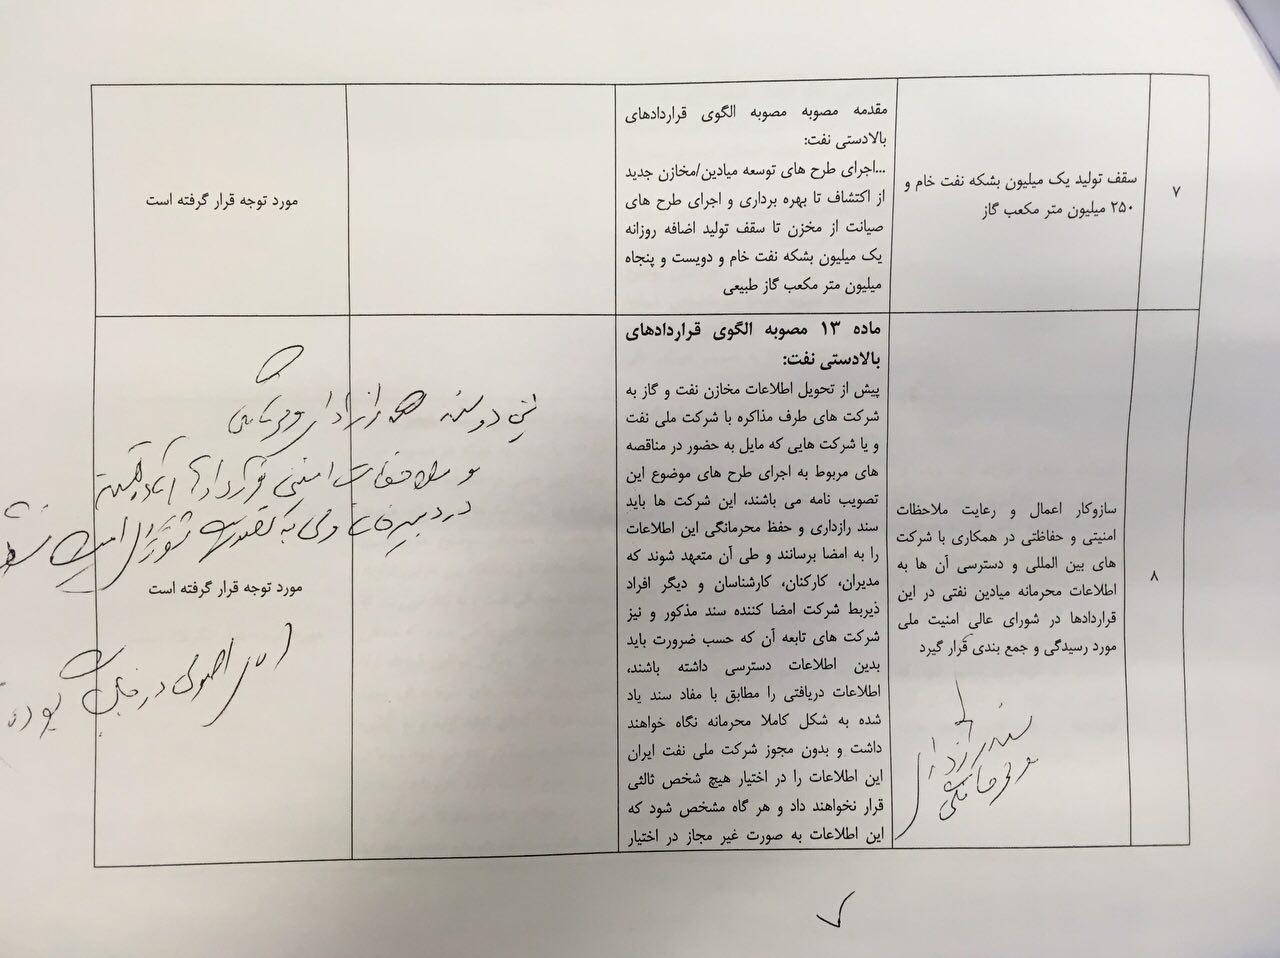 ۷
سقف تولید یک میلیون بشکه نفت خام و
۲۵۰ میلیون متر مکعب گاز
مقدمه مصوبه مصوبه الگوی قراردادهای
بالادستی نفت:
...اجرای طرح های توسعه میادین/مخازن جدید
از اکتشاف تا بهره برداری و اجرای طرح های
صیانت از مخزن تا سقف تولید اضافه روزانه
یک میلیون بشکه نفت خام و دویست و پنجاه
میلیون متر مکعب گاز طبیعی
مورد توجه قرار گرفته است
۸
سازوکار اعمال و رعایت ملاحظات
امنیتی و حفاظتی در همکاری با شرکت
های بین المللی و دسترسی آن ها به
اطلاعات محرمانه میادین نفتی در این
قراردادها در شورای عالی امنیت ملی
مورد رسیدگی و جمع بندی قرار گیرد
سند رازداری
و محرمانگی
ماده ۱۳ مصوبه الگوی قراردادهای
بالادستی نفت:
پیش از تحویل اطلاعات مخازن نفت و گاز به
شرکت های طرف مذاکره با شرکت ملی نفت
و یا شرکت هایی که مایل به حضور در مناقصه
های مربوط به اجرای طرح های موضوع این
تصویب نامه می باشند، این شرکت ها باید
سند رازداری و حفظ محرمانگی این اطلاعات
را به امضا برسانند و طی آن متعهد شوند که
مدیران، کارکنان، کارشناسان و دیگر افراد
ذیربط شرکت امضا کننده سند مذکور و نیز
شرکت های تابعه آن که حسب ضرورت باید
بدین اطلاعات دسترسی داشته باشند،
اطلاعات دریافتی را مطابق با مفاد سند یاد
شده به شکل کاملا محرمانه نگاه خواهند
داشت و بدون مجوز شرکت ملی نفت ایران
این اطلاعات را در اختیار هیچ شخص ثالثی
قرار نخواهند داد و هر گاه مشخص شود که
این اطلاعات به صورت غیر مجاز در اختیار
رازداری و محرمانگی
و ملاحظات امنیتی قراردادها
در دبیرخانه ولی به تصویب شورای امنیت
مورد توجه قرار گرفته است